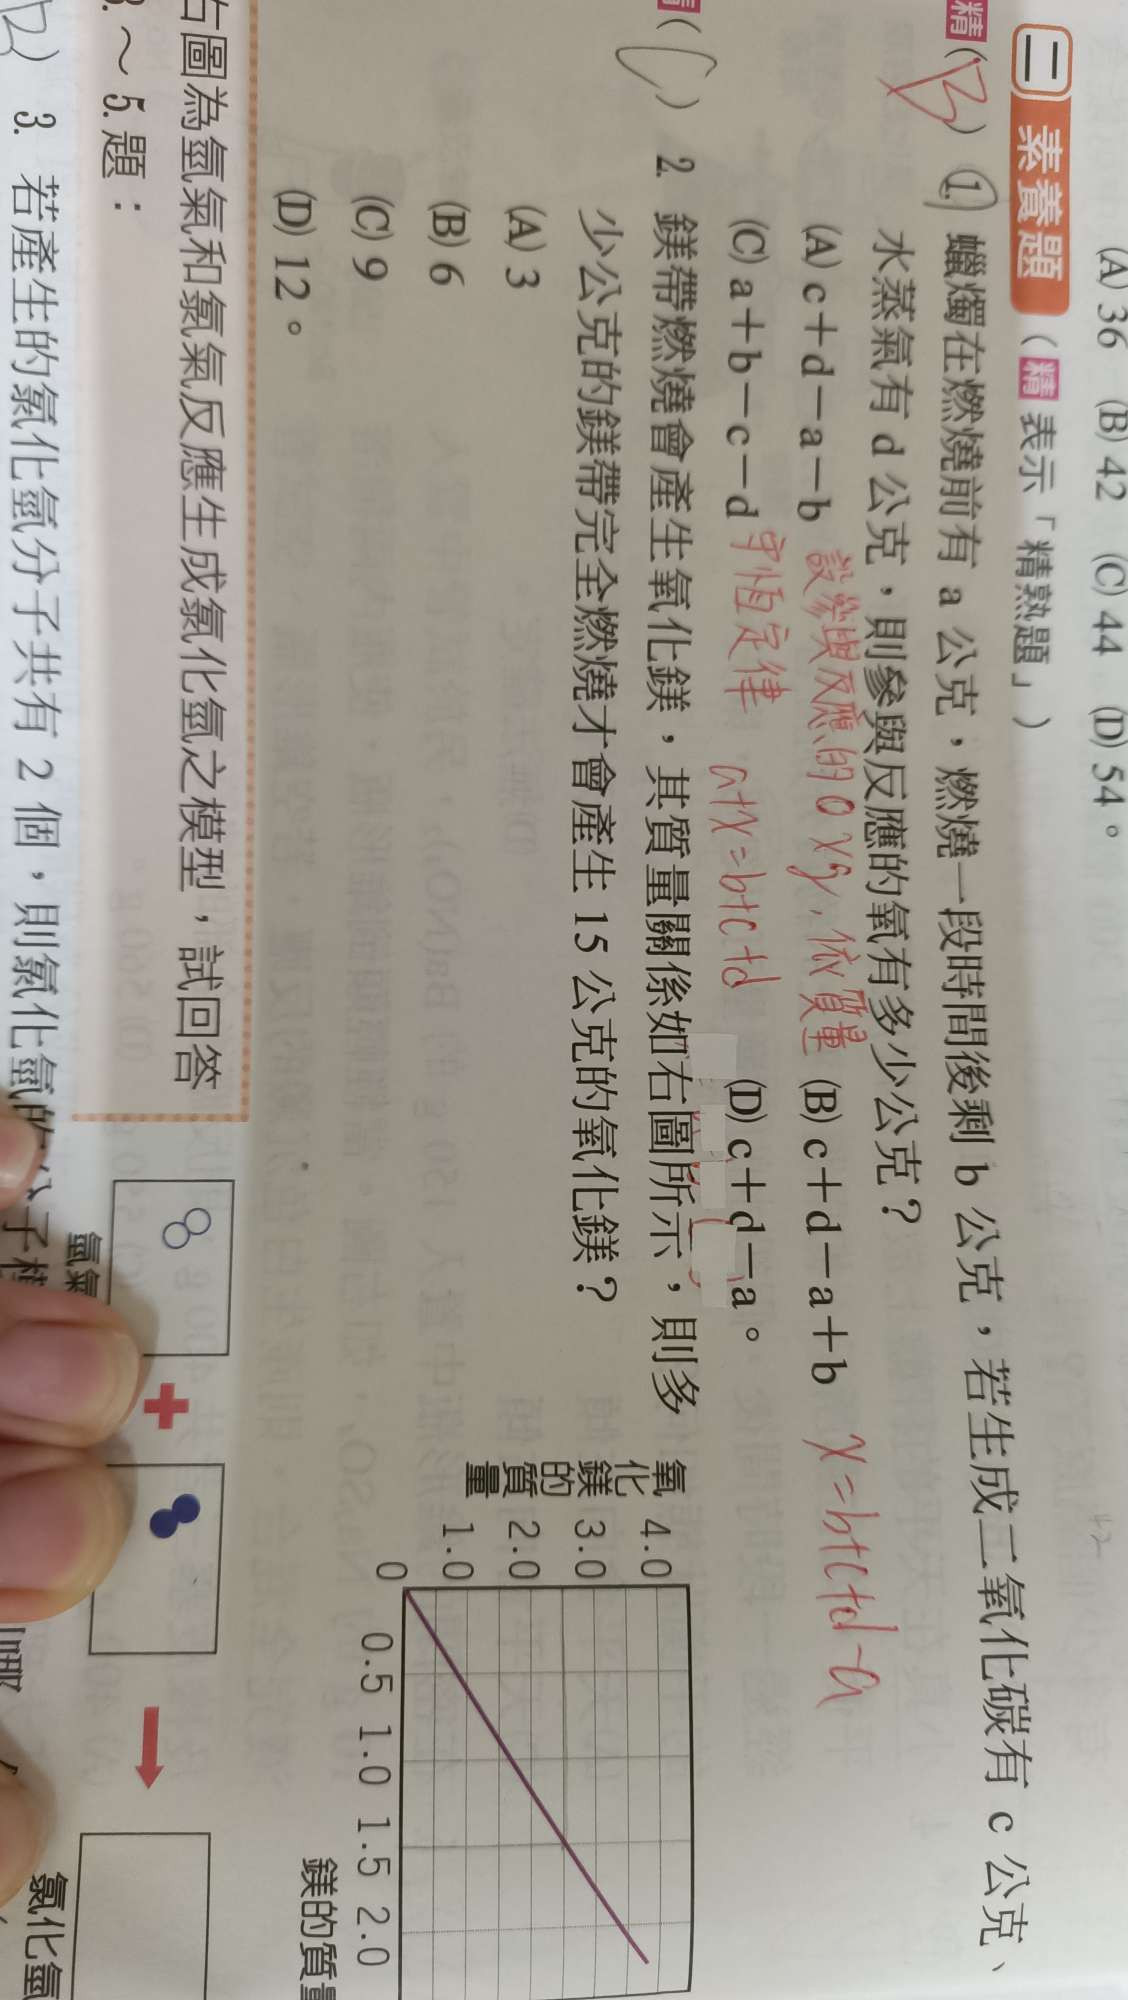 (A) 36 (B) 42 (C) 44 (D) 54。
二 素養題（精 表示「精熟題」）
精 (B) 1. 蠟燭在燃燒前有 a 公克，燃燒一段時間後剩 b 公克，若生成二氧化碳有 c 公克、
水蒸氣有 d 公克，則參與反應的氧有多少公克？
(A) c＋d－a－b (B) c＋d－a＋b
設參與反應的O X g，依質量
x=b+c+d-a
(C) a＋b－c－d (D) c＋d－a。
守恆定律，a+x=b+c+d
(C) 2. 鎂帶燃燒會產生氧化鎂，其質量關係如右圖所示，則多
少公克的鎂帶完全燃燒才會產生 15 公克的氧化鎂？
(A) 3
(B) 6
(C) 9
(D) 12。
氧化鎂的質量
4.0
3.0
2.0
1.0
0
0.5 1.0 1.5 2.0
鎂的質量
右圖為氫氣和氯氣反應生成氯化氫之模型，試回答
3.～5.題：
氫氣
氯化氫
3. 若產生的氯化氫分子共有 2 個，則氯化氫的分子